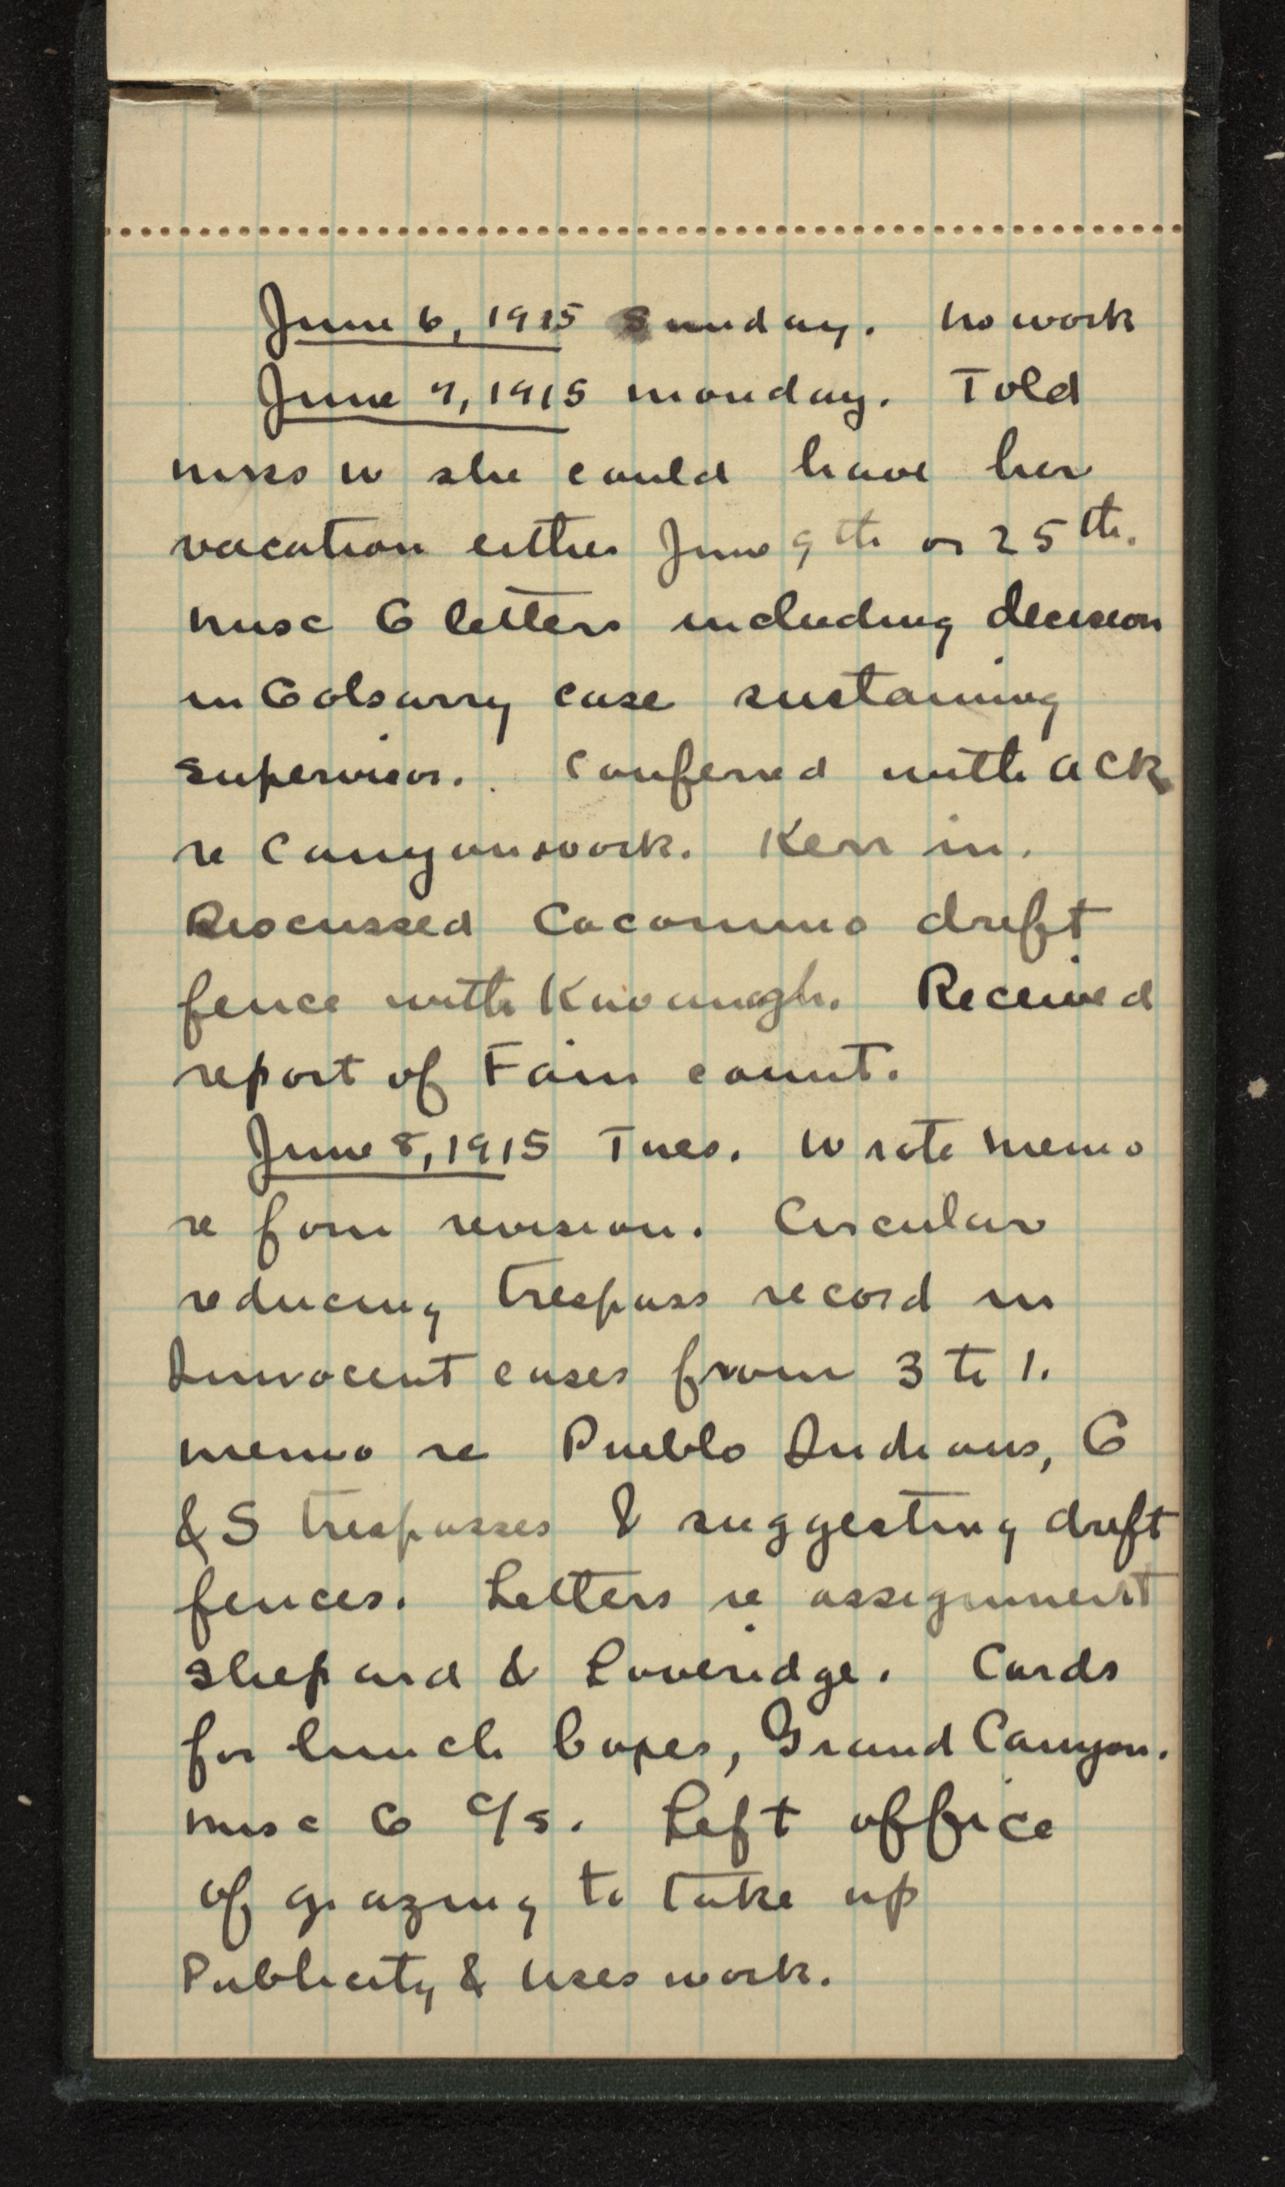 June 6, 1915 Sunday. No work
June 7, 1915 Monday. Told
Miss W she could have her
vacation either June 9th or 25th.
Misc G letters including decision
in case sustaining
Supervisor. Conferred with ACR
re Canyon work. Kerr in.
Discussed Coconino drift
fence with Kavanagh. Received
report of Fain count.
June 8, 1915 Tues. Wrote memo
re form revision. Circular
reducing trespass record in
Innocent cases from 3 to 1.
Memo re Pueblo Indians, G
& S trespasses & suggesting drift
fences. Letters re assignment
Shepard & Loveridge. Cards
for lunch boxes, Grand Canyon.
Misc G c/s. Left office
of grazing to take up
Publicity & Uses work.